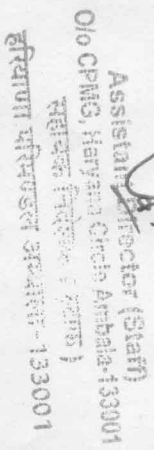 Assistant Director (Staff)
O/o CPMG, Haryana Circle, Ambala-133001
सहायक निदेशक (स्टाफ)
हरियाणा परिमण्डल अम्बाला-133001